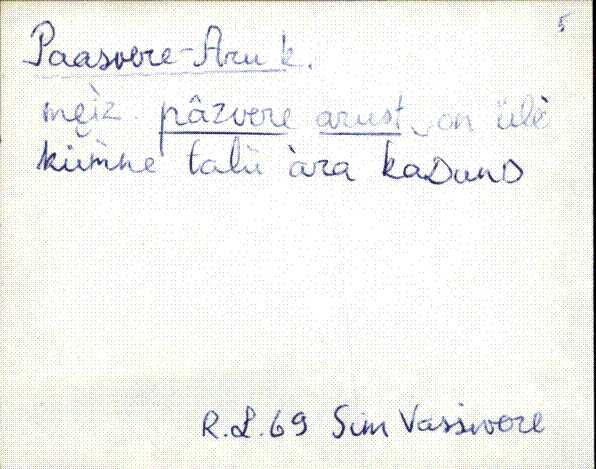 5
Paasvere-Aru k.
meìz. pâzvere arust, on ülè
kümne talù àra kaDunD
R.L.69 Sim Vassivere